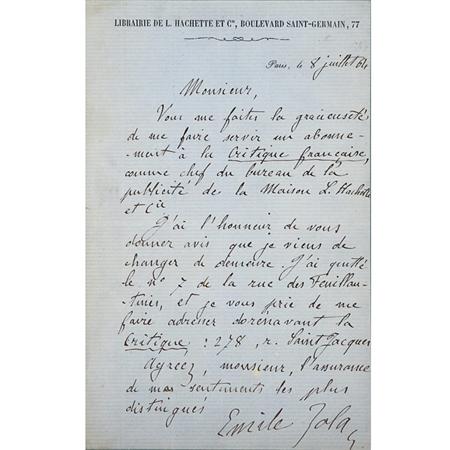 LIBRAIRIE DE L. HACHETTE ET Cie, BOULEVARD SAINT-GERMAIN, 77
Paris, le 8 juillet 64
Monsieur,
Vous me faites la gracieuseté
de me faire servir un abonne-
-ment à la Critique française,
comme chef du bureau de la
publicité de la Maison L. Hachette
et Cie
J'ai l'honneur de vous
donner avis que je viens de
changer de demeure. J'ai quitté
le n° 7 de la rue des Feuillan-
-tines, et je vous prie de me
faire adresser dorénavant la
Critique : 278, r. Saint-Jacques
Agréez, monsieur, l'assurance
de mes sentiments les plus
distingués
Emile Zola